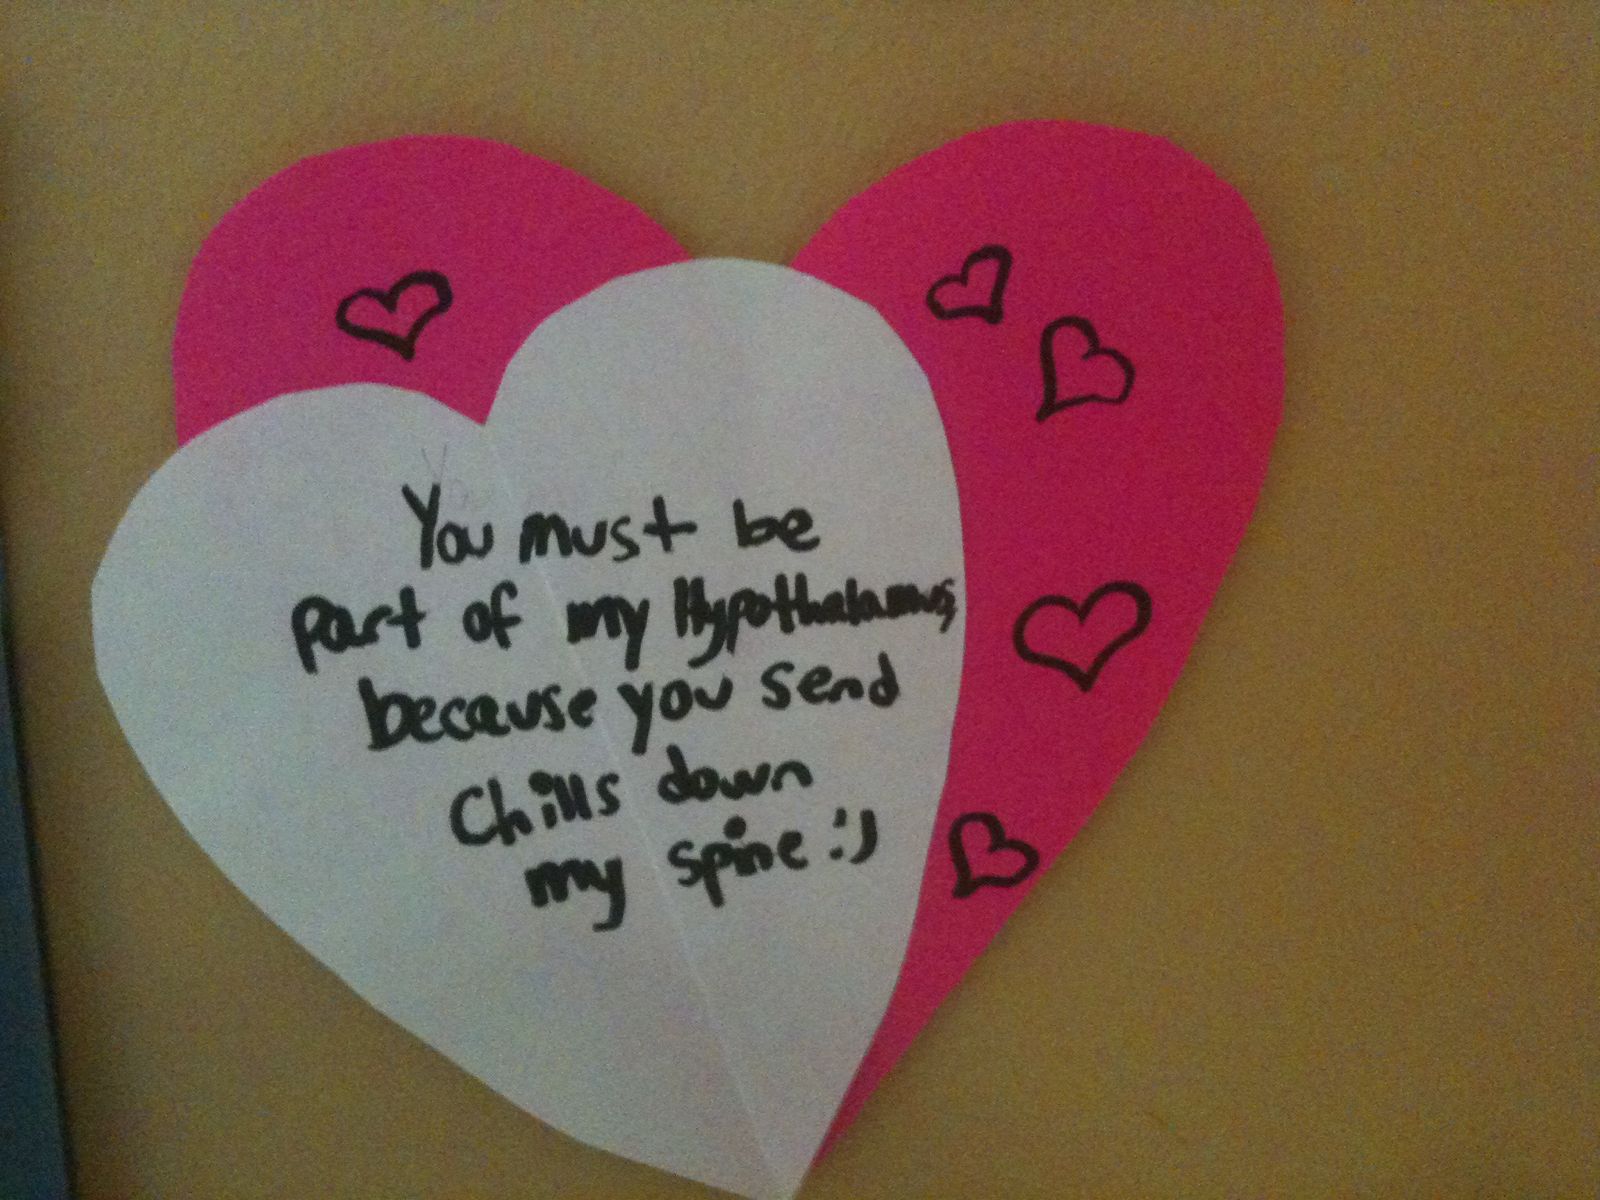 You must be
part of my Hypothalamus,
because you send
Chills down
my spine :)